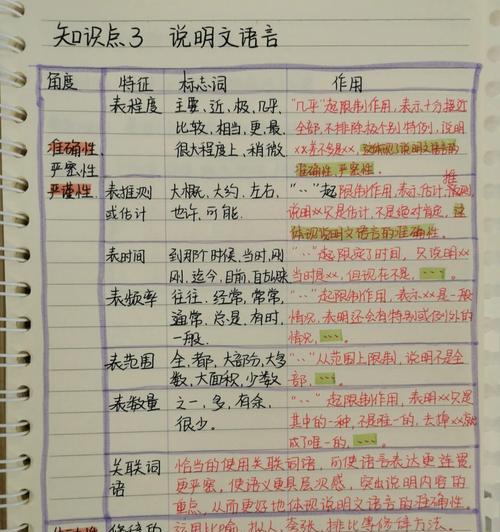 知识点3 说明文语言
角度 特征 标志词 作用
准确性、
严密性、
严谨性。
表程度
主要、近、极、几乎、
比较、相当、更、最、
很大程度上、稍微
"几乎"起限制作用，表示十分接近
全部，不排除极个别特例，说明
xx差不多是xx，这体现了说明文语言的
准确性、严密性。
表推测
或估计
大概、大约、左右、
也许、可能.
"··"起限制作用，表示估计、推测，
说明xx只是估计，不是绝对肯定，这
体现说明文语言的准确性。
表时间
到那个时候、当时、刚
刚、迄今、目前、自古以来
"··"起限定了时间，只说明xx
当时是xx，但现在不是，···。
表频率
往往、经常、常常、
通常、总是、有时、
一般.
"··"起限制作用，表示xx是一般
情况，表明还会有特别或例外的
情况，···。
表范围
全、都、大部分、大多
数、大面积、少数
"··"从范围上限制，说明不是全
部，···。
表数量
之一、多、有余、
很少。
"··"起限制作用，表明xx只是
其中的一种，不是唯一的，去掉xx就
成了唯一的，···。
关联词
语
恰当的使用关联词语，可使语言表达更连贯、
更严密，使语义更具层次感，突出说明内容的
重点，从而更好地体现说明文语言的准确性。
运用比喻、拟人、夸张、排比等修辞方法，